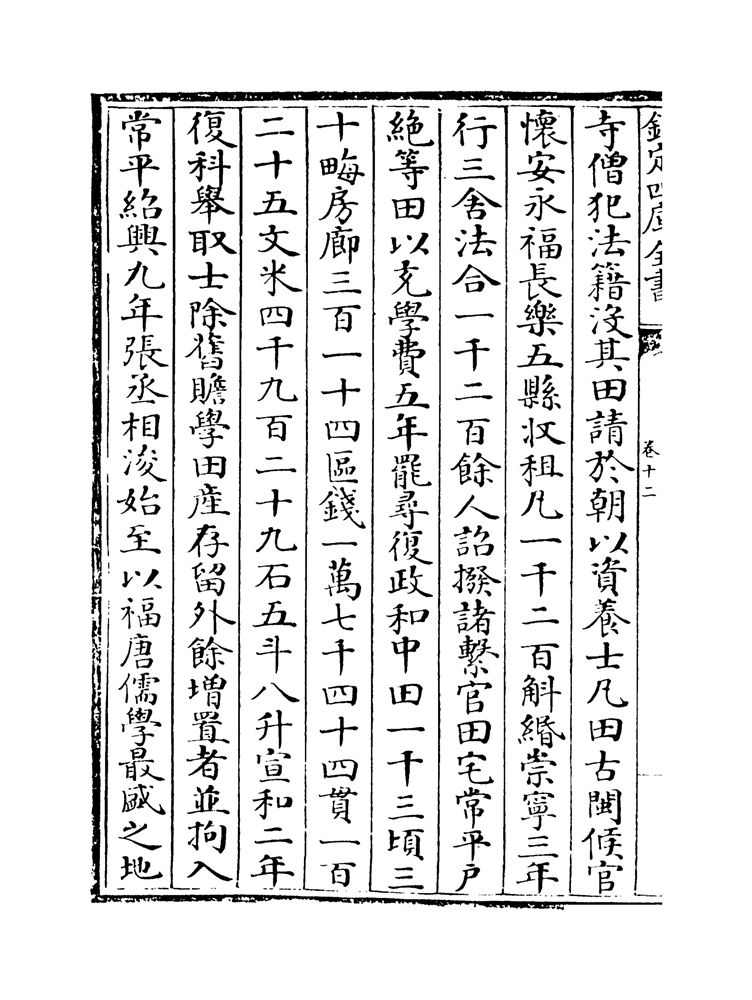 欽定四庫全書
卷十二
寺僧犯法籍沒其田請於朝以資養士凡田古閩候官
懷安永福長樂五縣收租凡一千二百斛緡崇寧三年
行三舍法合一千二百餘人詔撥諸繫官田宅常平戸
絶等田以充學費五年罷尋復政和中田一千三頃三
十畮房廊三百一十四區錢一萬七千四十四貫一百
二十五文米四千九百二十九石五斗八升宣和二年
復科舉取士除舊贍學田産存留外餘增置者並拘入
常平紹興九年張丞相浚始至以福唐儒學最盛之地